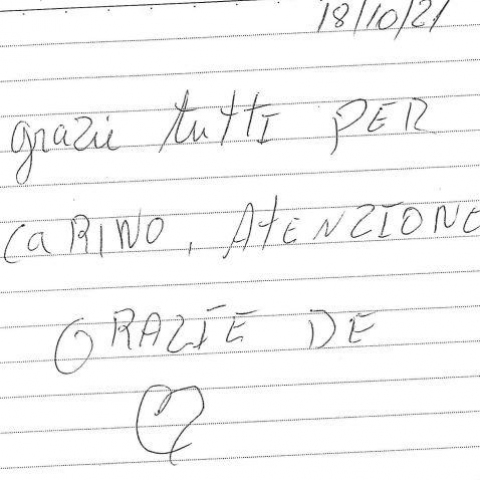 18/10/21
grazie tutti PER
CaRINO, AtENZIONE
GRAZIE DE